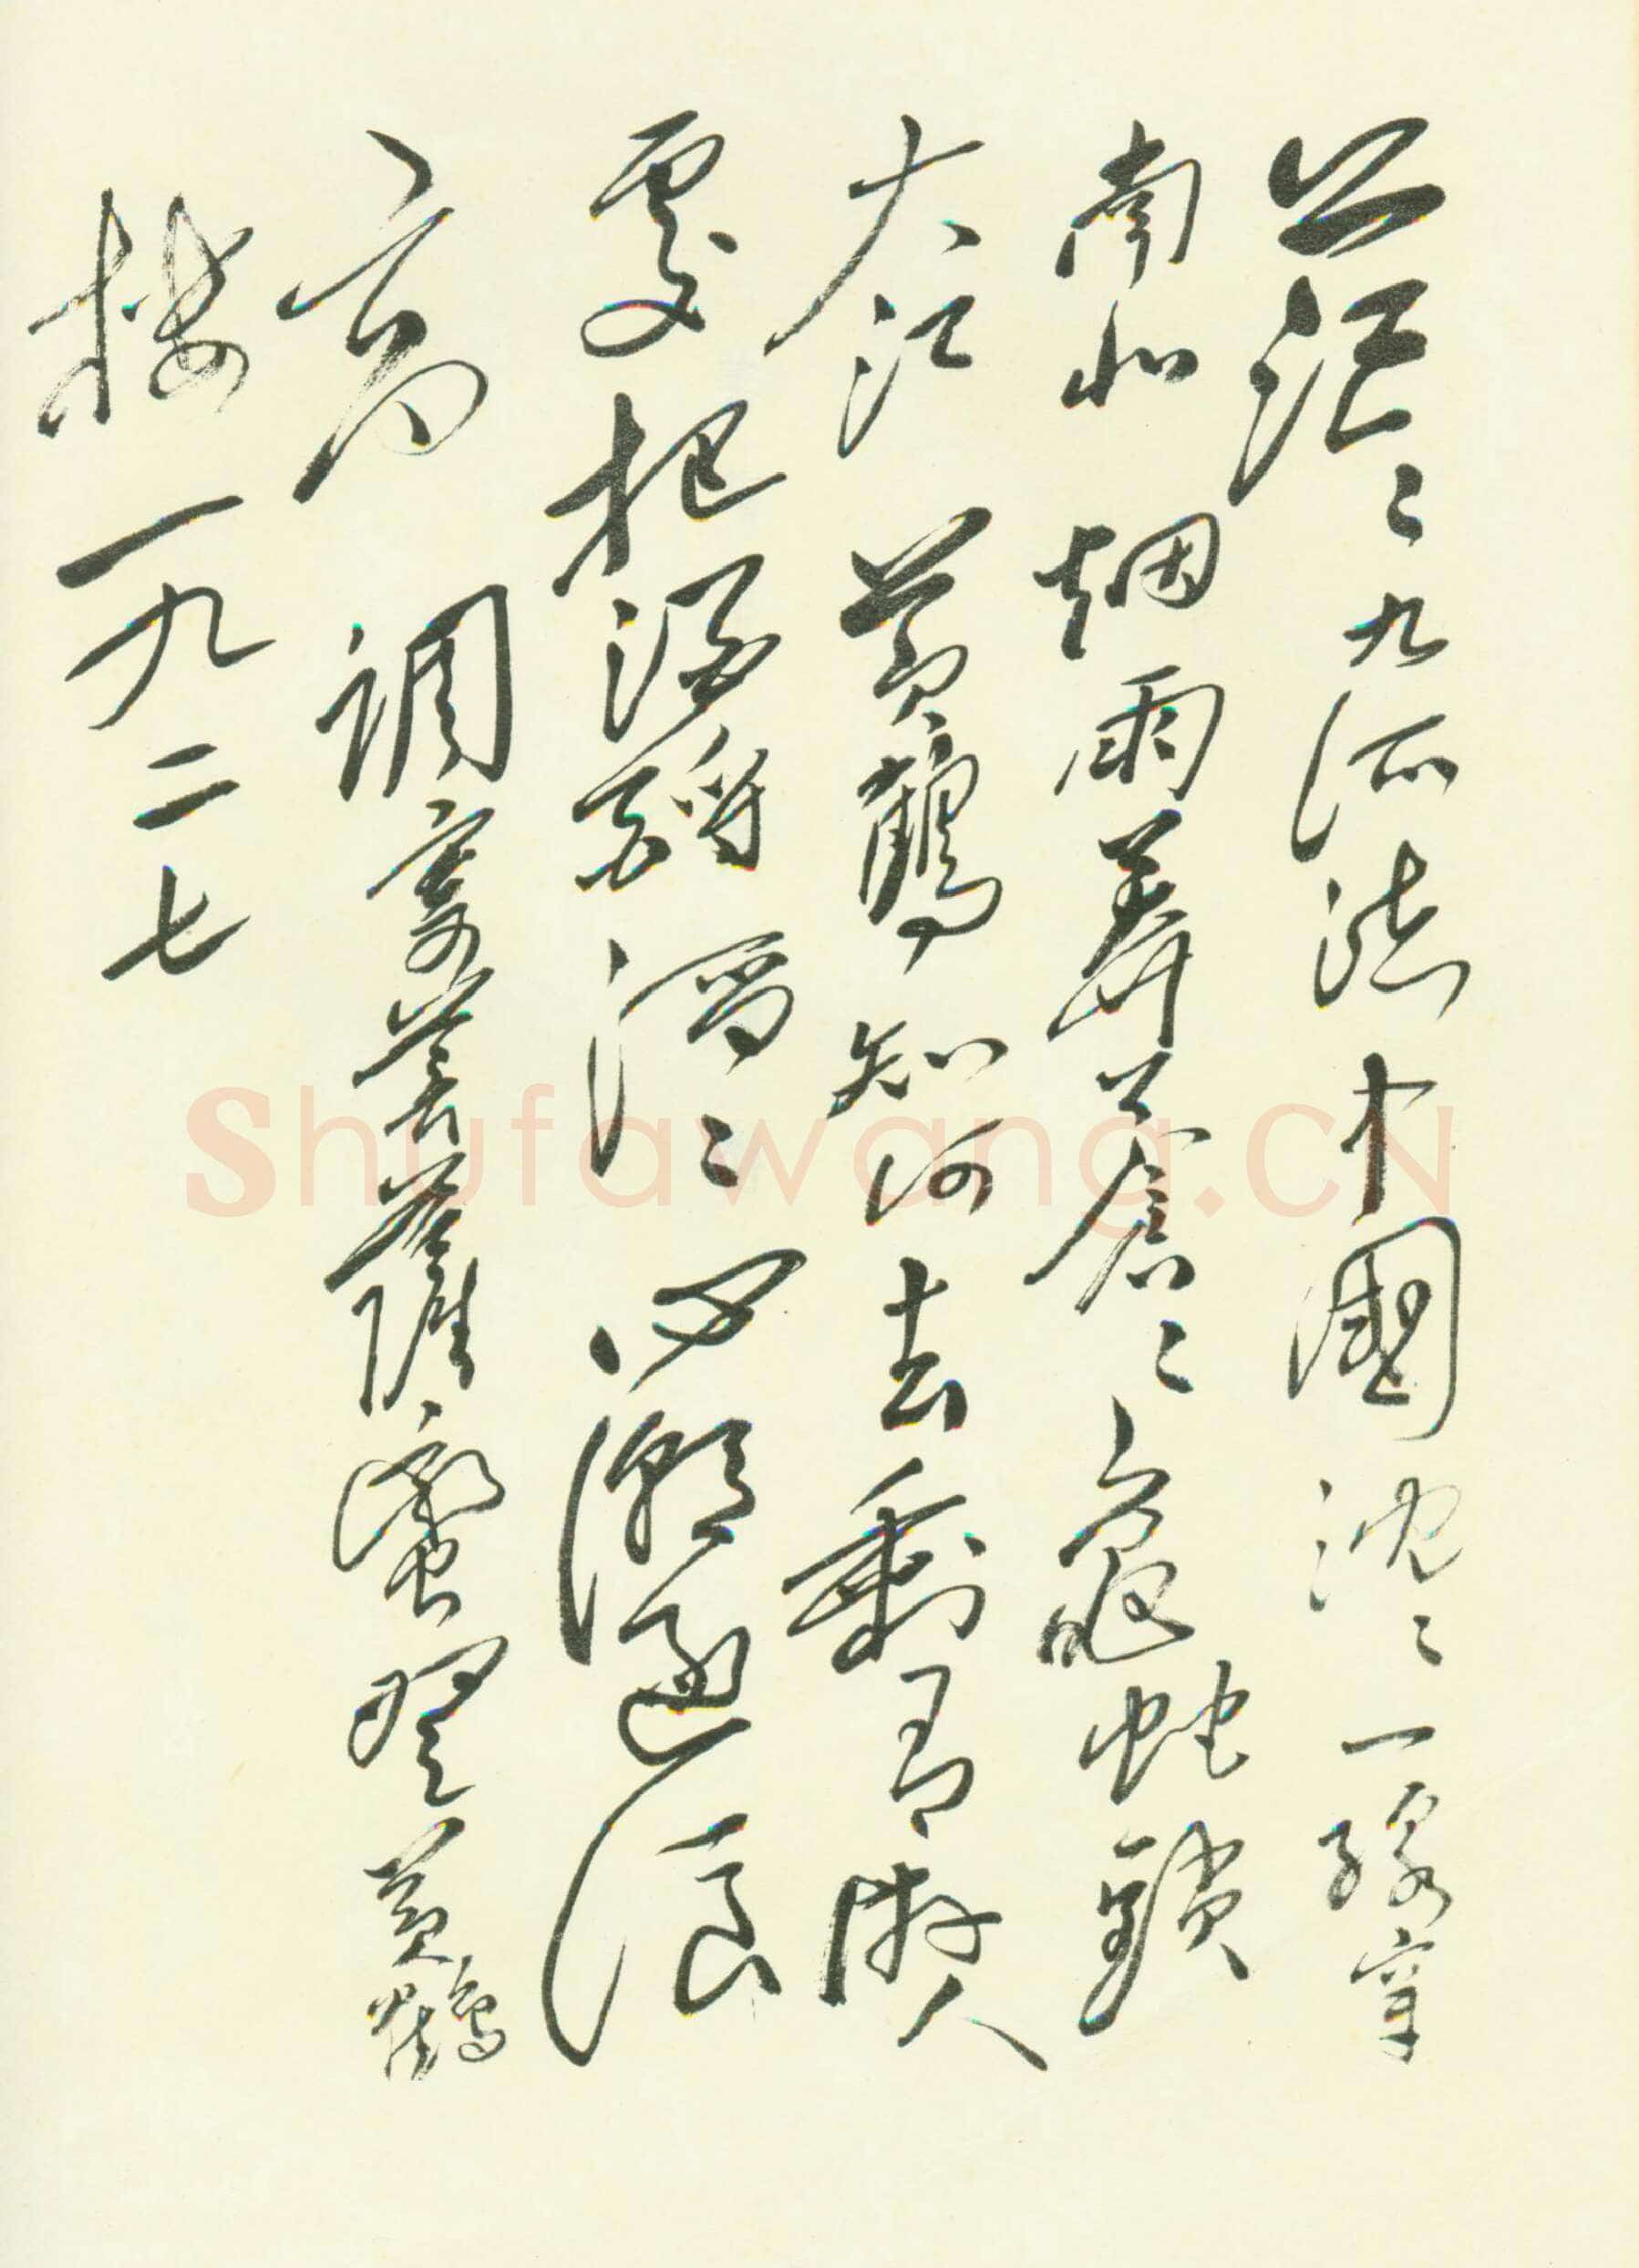 茫〻九派流中國沈〻一線穿
南北烟雨莽蒼〻龜蛇鎖
大江黃鶴知何去剩有游人
處把酒酹滔〻心潮逐浪
高 調寄菩薩蠻登黃鶴
樓一九二七
Shufawang.CN